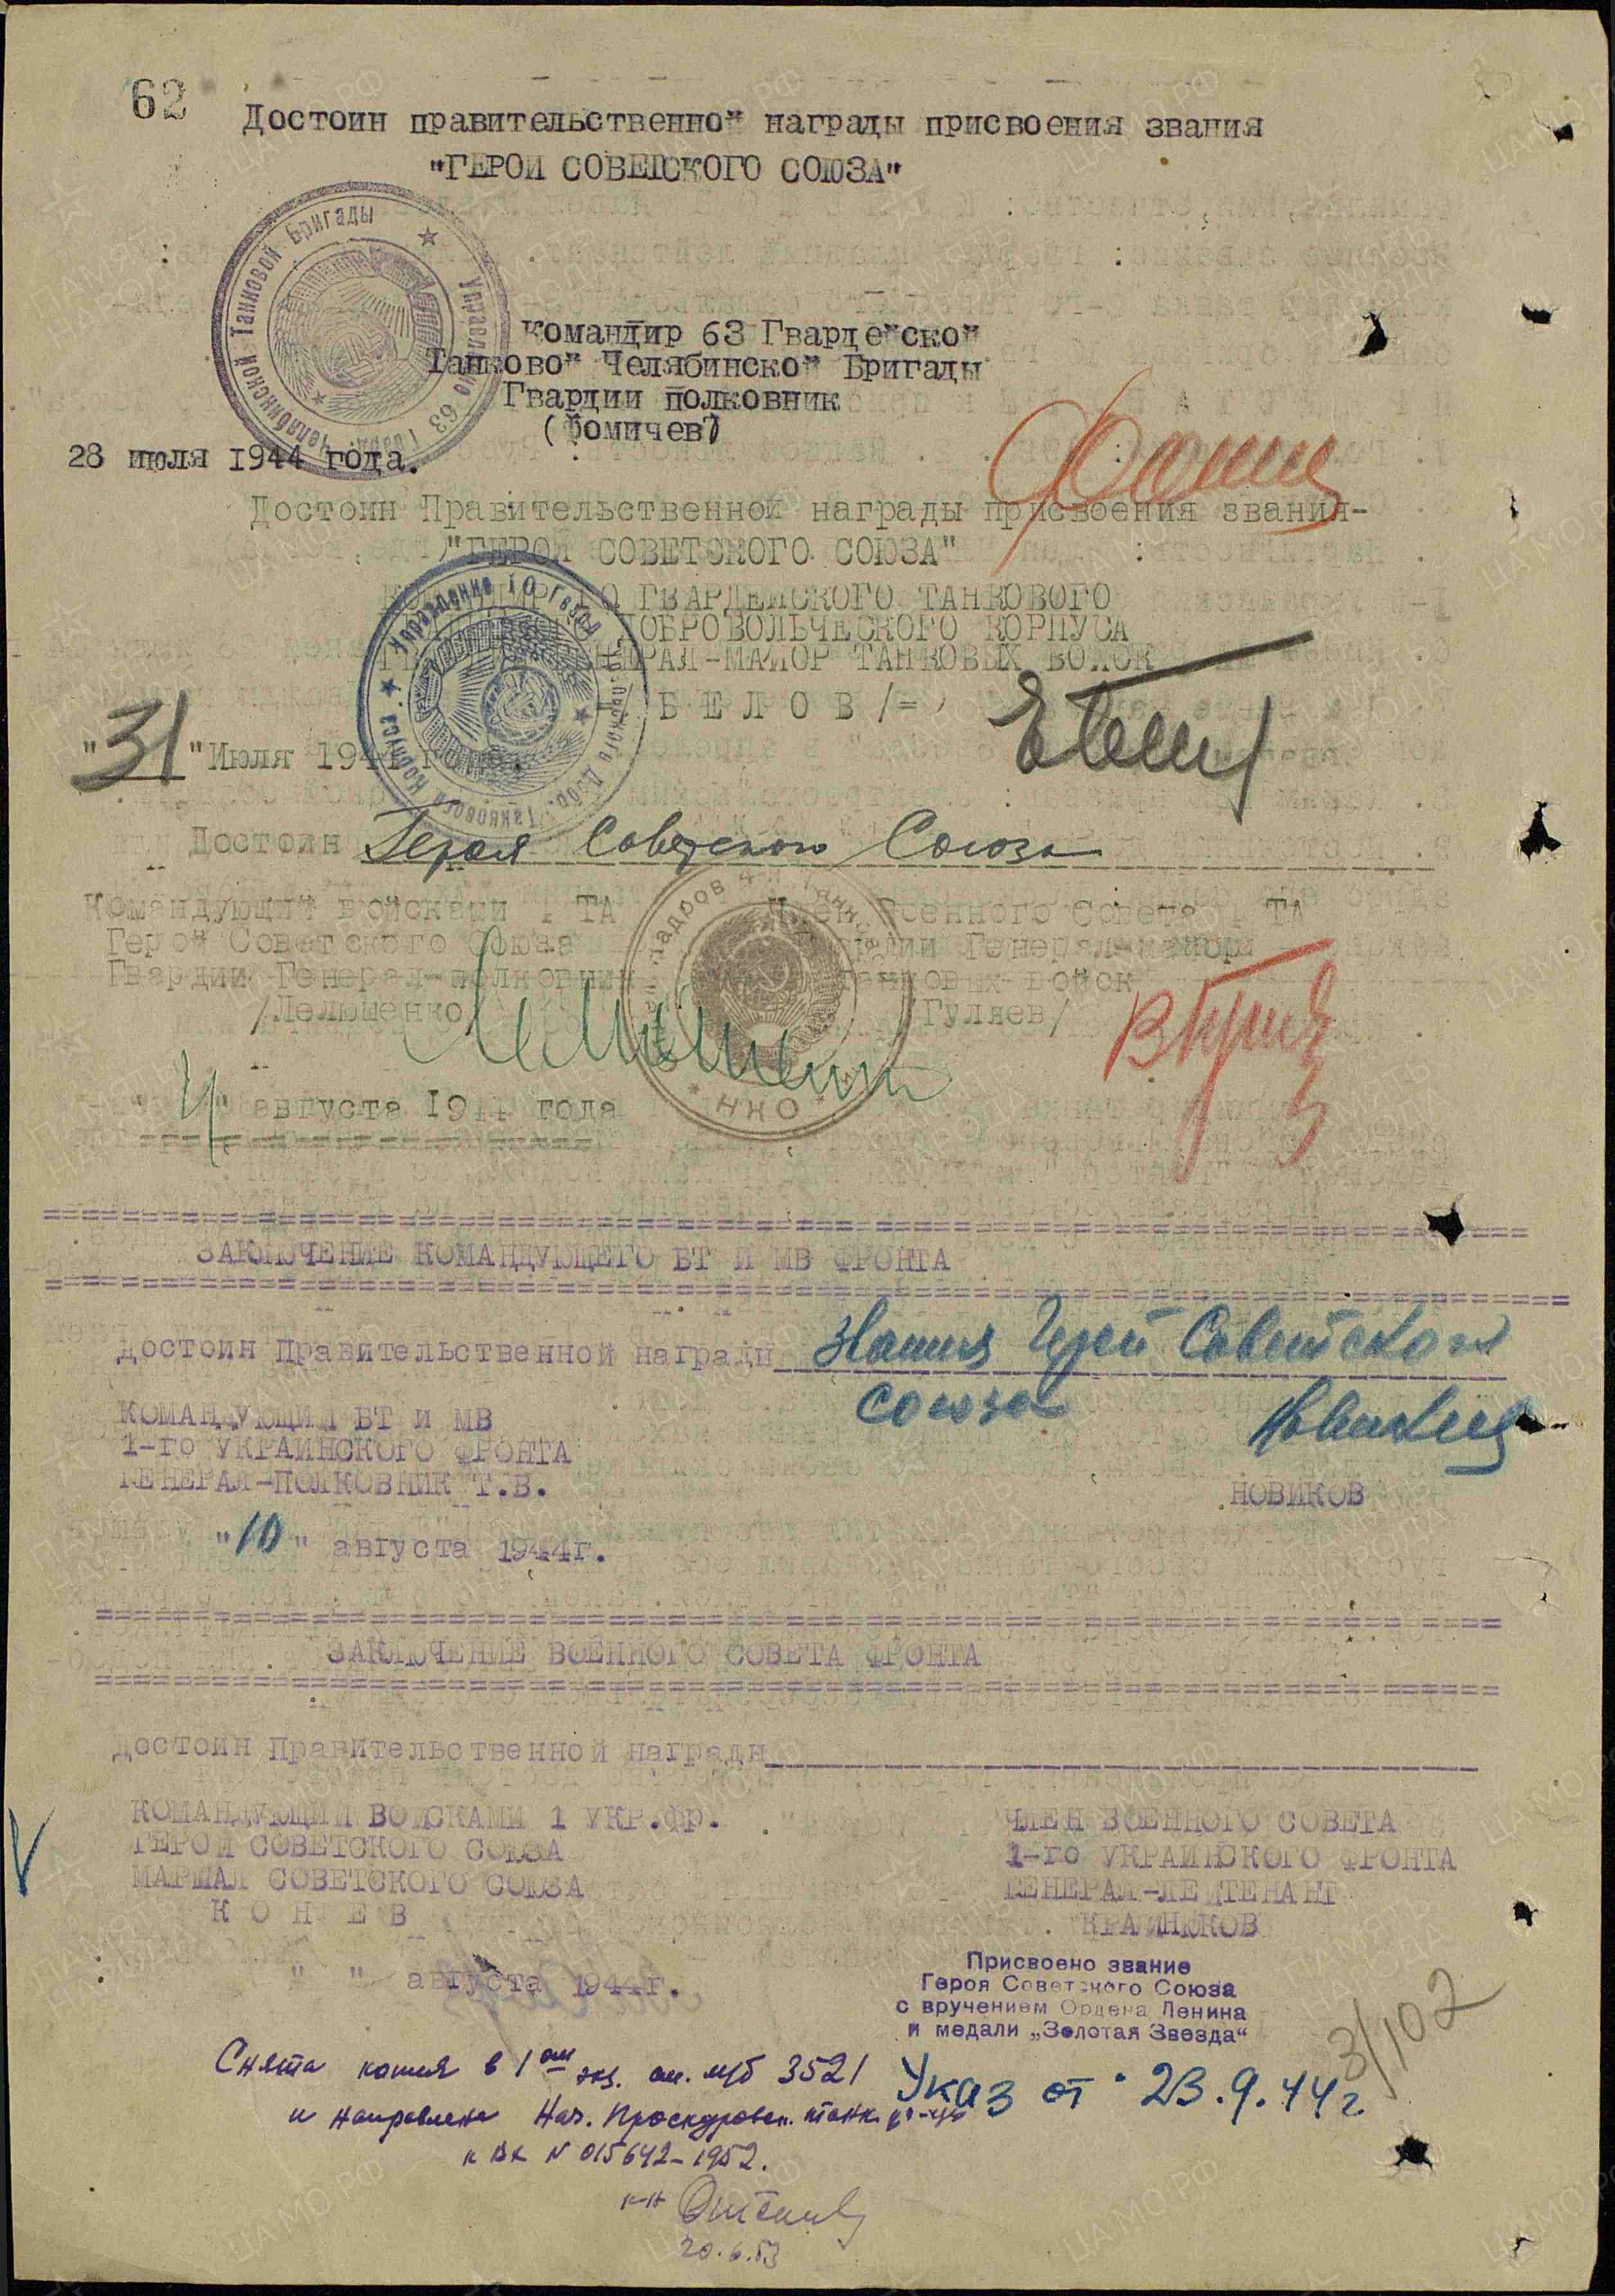 62
Достоин правительственной награды присвоения звания
"ГЕРОЙ СОВЕТСКОГО СОЮЗА"
Командир 63 Гвардейской
Танковой Челябинской Бригады
Гвардии полковник
(Фомичев)
28 июля 1944 года.
Достоин Правительственной награды присвоения звания-
"ГЕРОЙ СОВЕТСКОГО СОЮЗА"
ГВАРДЕЙСКОГО ТАНКОВОГО
ДОБРОВОЛЬЧЕСКОГО КОРПУСА
ГЕНЕРАЛ-МАЙОР ТАНКОВЫХ ВОЙСК
/ Б Е Л О В /=
"31" Июля 1944 года.
Достоин Героя Советского Союза
Командующий войсками 4 ТА
Герой Советского Союза
Гвардии Генерал-полковник
/Лелюшенко/
Член Военного Совета 4 ТА
Гвардии Генерал-майор
Танковых войск
/Гуляев/
"4" августа 1944 года
ЗАКЛЮЧЕНИЕ КОМАНДУЮЩЕГО БТ И МВ ФРОНТА
Достоин Правительственной награды Звания Герой Советского
Союза
КОМАНДУЮЩИЙ БТ И МВ
1-го УКРАИНСКОГО ФРОНТА
ГЕНЕРАЛ-ПОЛКОВНИК Т.В.
НОВИКОВ
"10" августа 1944г.
ЗАКЛЮЧЕНИЕ ВОЕННОГО СОВЕТА ФРОНТА
Достоин Правительственной награды
КОМАНДУЮЩИЙ ВОЙСКАМИ 1 УКР.ФР.
ГЕРОЙ СОВЕТСКОГО СОЮЗА
МАРШАЛ СОВЕТСКОГО СОЮЗА
К О Н Е В
ЧЛЕН ВОЕННОГО СОВЕТА
1-го УКРАИНСКОГО ФРОНТА
ГЕНЕРАЛ-ЛЕЙТЕНАНТ
КРАЙНЮКОВ
" " августа 1944г.
Присвоено звание
Героя Советского Союза
с вручением Ордена Ленина
и медали „Золотая Звезда"
3/102
Указ от 23.9.44г
Снята копия в 1ом экз. 3521
и направлена Нач. Проскуровск. танк.
к Вх N 015642-1952.
к-н
20.6.53